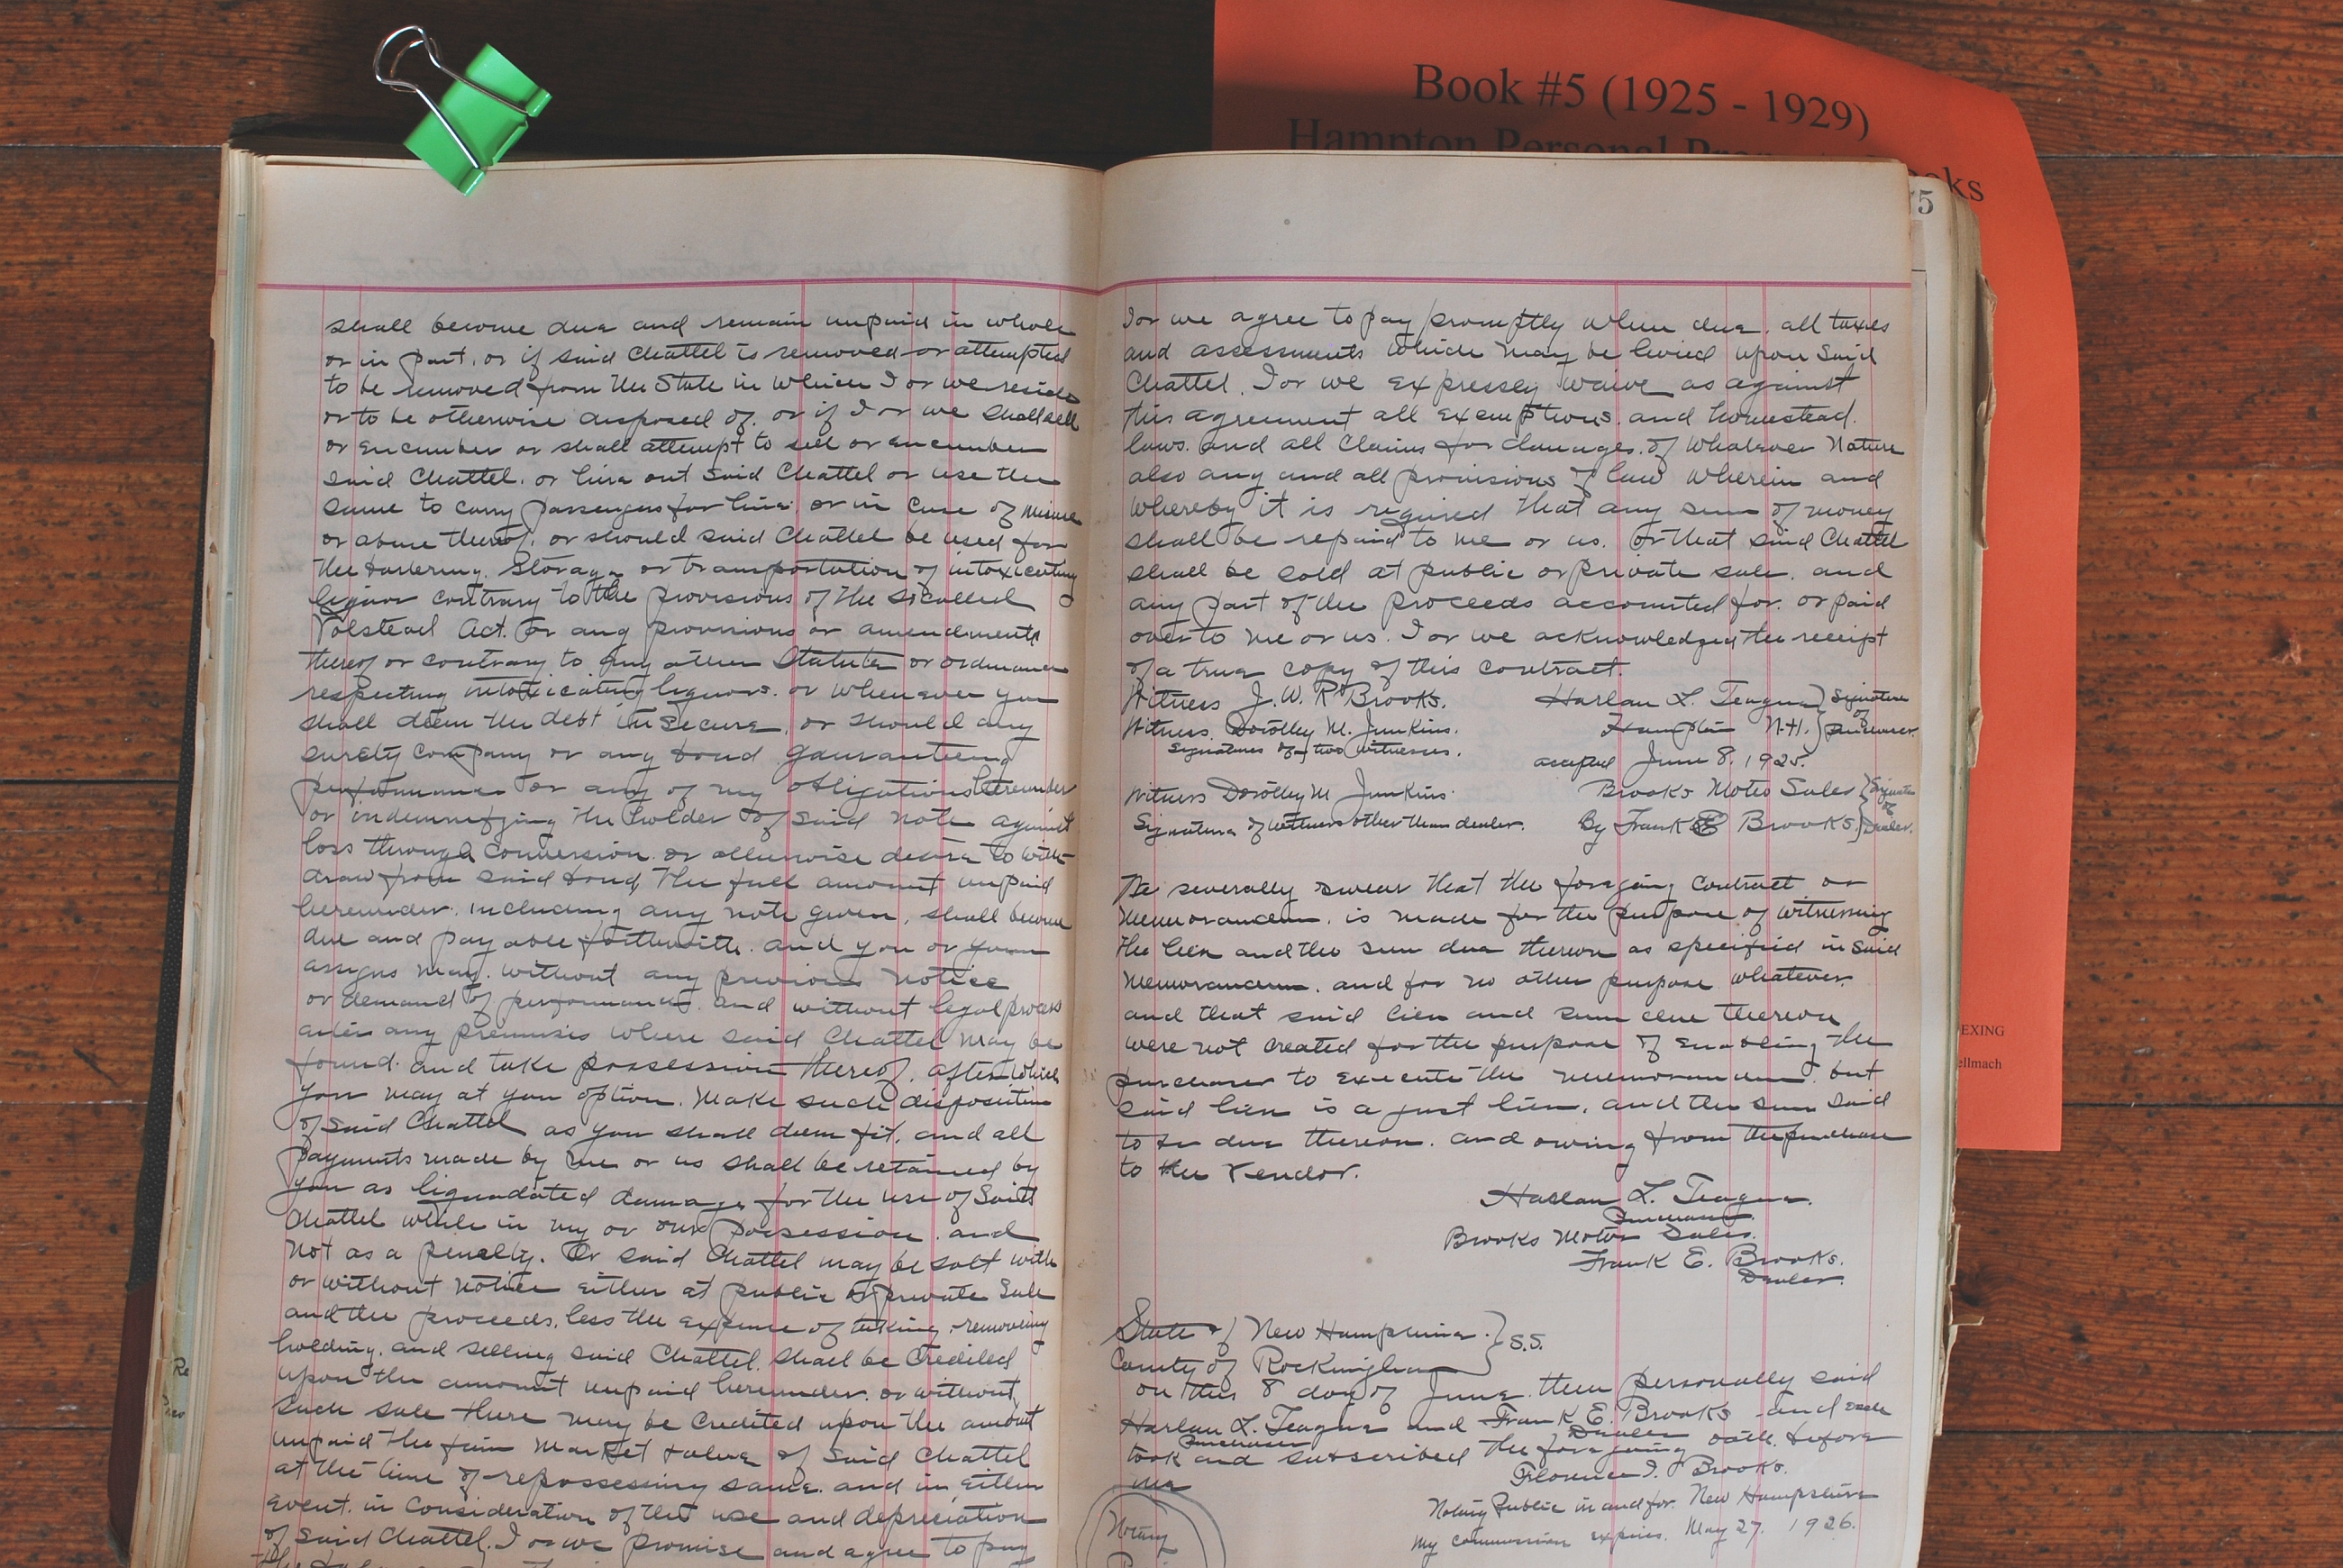 Book #5 (1925 - 1929)
Hampton Personal
oks
75
EXING
ellmach
shall become due and remain unpaid in whole
or in part, or if said Chattel is removed or attempted
to be removed from the State in which I or we reside
or to be otherwise disposed of, or if I or we shall sell
or encumber or shall attempt to sell or encumber
said Chattel, or hire out said Chattel or use the
same to carry passengers for hire or in case of misuse
or abuse thereof, or should said Chattel be used for
the harboring, storage or transportation of intoxicating
liquor contrary to the provisions of the so called
Volstead Act. or any provisions or amendments
thereof or contrary to any other Statute or ordinance
respecting intoxicating liquors. or whenever you
shall deem the debt insecure, or should any
surety company or any bond gauranteeing
performance or any of my obligations hereunder
or indemnifying the holder of said note against
loss through conversion or otherwise desire to with-
draw from said bond, the full amount unpaid
hereunder, including any note given, shall become
due and payable forthwith. and you or your
assigns may, without any previous notice
or demand of performance, and without legal process
enter any premises where said Chattel may be
found and take possession thereof. after which
you may at your option. Make such disposition
of said Chattel as you shall deem fit, and all
payments made by me or us shall be retained by
you as liquidated damages for the use of Said
Chattel while in my or our possession. and
not as a penalty. Or said Chattel may be solt with
or without notice either at public or private Sale
and the proceeds, less the expense of taking, removing
holding, and selling said Chattel, shall be Credited
upon the amount unpaid hereunder. or without
such sale there may be credited upon the amount
unpaid the fair market value of said Chattel
at the time of repossessing same. and in either
event, in consideration of the use and depreciation
of said Chattel, I or we promise and agree to pay
I or we agree to pay promptly when due, all taxes
and assessments which may be levied upon said
Chattel. I or we expressly waive as against
this agreement all exemptions, and homestead
laws. and all Claims for damages. of whatever Nature
also any and all provisions of law wherein and
whereby it is required that any sum of money
shall be repaid to me or us. or that said Chattel
shall be sold at public or private sale. and
any part of the proceeds accounted for. or paid
over to me or us. I or we acknowledged the receipt
of a true copy of this contract.
Witness J. W. R Brooks. Harlan L. Teague } Signature
Witness. Dorothy M. Junkins. Hampton N.H. } of Purchaser.
Signatures of two witnesses. accepted June 8, 1925.
Witness Dorothy M Junkins. Brooks Motor Sales } Signature of
Signature of witness other than dealer. By Frank E Brooks. } Dealer.
We severally swear that the foregoing contract or
memorandum, is made for the purpose of witnessing
the lien and the sum due thereon as specified in said
memorandum. and for no other purpose whatever.
and that said lien and sum due thereon
were not created for the purpose of enabling the
purchaser to execute the memorandum. but
said lien is a just lien. and the sum said
to be due thereon. and owing from the purchaser
to the Vendor.
Harlan L. Teague.
Purchaser.
Brooks Motor Sales.
Frank E. Brooks.
Dealer.
State of New Hampshire. } S.S.
County of Rockingham
on this 8 day of June then personally said
Harlan L. Teague and Frank E. Brooks and each
Purchaser Dealer
took and subscribed the foregoing oath. before
me
Florence I. Brooks.
Notary Public in and for New Hampshire
My commission expires. May 27. 1926.
Notary